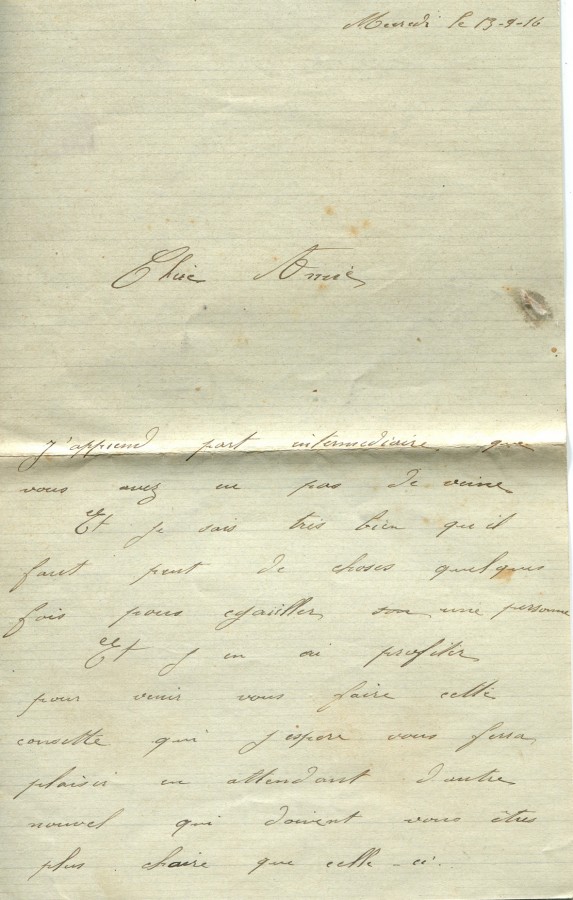 Mecredi le 13-9-16
Chère Amie
J'apprend part intermediaire que
vous avez eu pas de veine
Et je sais très bien qu'il
faut peut de choses quelques
fois pour egailler une personne
Et j en ai profiter
pour venir vous faire cette
causette qui j'espere vous ferra
plaisir en attendant d'autre
nouvel qui doivent vous êtres
plus chaire que celle-ci.